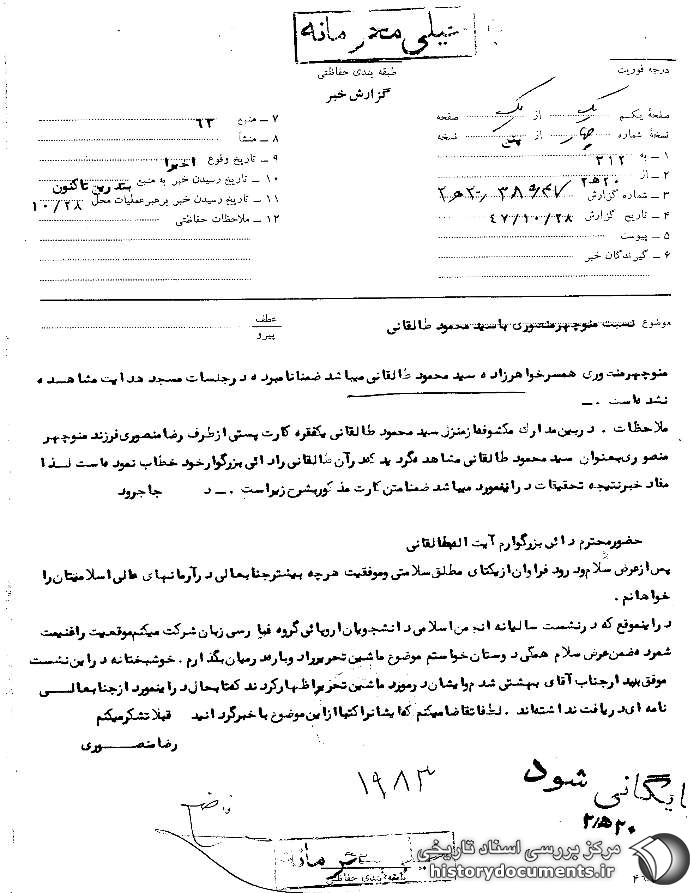 خیلی محرمانه
درجه فوریت
طبقه بندی حفاظتی
گزارش خبر
صفحهٔ یکم یک از یک صفحه
نسخهٔ شماره چهار از پنج نسخه
۱ ــ به ۳۱۲
۲ ــ از ۲۰ هـ ۲
۳ ــ شماره گزارش
۴ ــ تاریخ گزارش ۴۷/۱۰/۲۸
۵ ــ پیوست
۶ ــ گیرندگان خبر
۷ ــ منبع ۶۳
۸ ــ منشأ
۹ ــ تاریخ وقوع اخیرا
۱۰ ــ تاریخ رسیدن خبر به منبع بتدریج تاکنون
۱۱ ــ تاریخ رسیدن خبر برهبر عملیات محل ۱۰/۲۸
۱۲ ــ ملاحظات حفاظتی
موضوع نسبت منوچهر منصوری با سید محمود طالقانی
عطف
پیرو
منوچهر منصوری همسر خواهرزاده سید محمود طالقانی میباشد ضمنا نامبرده در جلسات مسجد هدایت مشاهده
نشده است . ــ
ملاحظات . در بین مدارک مکشوفه از منزل سید محمود طالقانی یکفقره کارت پستی از طرف رضا منصوری فرزند منوچهر
منصوری بعنوان سید محمود طالقانی مشاهده گردید که در آن طالقانی را دائی بزرگوار خود خطاب نموده است لذا
مفاد خبر نتیجه تحقیقات در اینمورد میباشد ضمنا متن کارت مذکور بشرح زیر است . ــ د جاجرود
حضور محترم دائی بزرگوارم آیت الله طالقانی
پس از عرض سلام و درود فراوان از یکتای مطلق سلامتی و موفقیت هرچه بیشتر جنابعالی در آرمانهای عالی اسلامیتان را
خواهانم .
در این موقع که در نشست سالیانه انجمن اسلامی دانشجویان اروپائی گروه فارسی زبان شرکت میکنم موقعیت را غنیمت
شمرده ضمن عرض سلام همگی دوستان خواستم موضوع ماشین تحریر را دوباره در میان بگذارم . خوشبختانه در این نشست
موفق بدیدار جناب آقای بهشتی شدم و ایشان در مورد ماشین تحریر اظهار کردند که تا بحال در اینمورد از جنابعالی
نامه ای دریافت نداشته اند . لطفا تقاضا میکنم که ایشان را کتبا از این موضوع با خبر گردانید قبلا تشکر میکنم
رضا منصوری
بایگانی شود
۲۰ هـ ۲
۱۹۸۳
خیلی محرمانه
طبقه بندی حفاظتی
مرکز بررسی اسناد تاریخی
historydocuments.ir